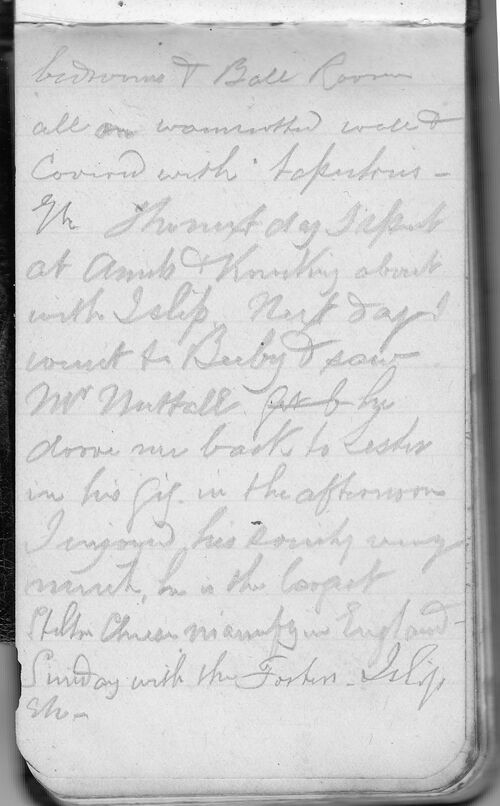 bedrooms & Ball Room
all on wainscotted wall &
Covered with tapestries -
The next day I spent
at Aunts & Knocking about
with Islip Next day I
went to Beeby & saw
Mr Nuttall he
drove me back to Lester
in his Gig in the afternoon
I enjoyed his society very
much, he is the largest
Stilton Cheese manufy in England -
Sunday with the Fosters - Islip
etc -